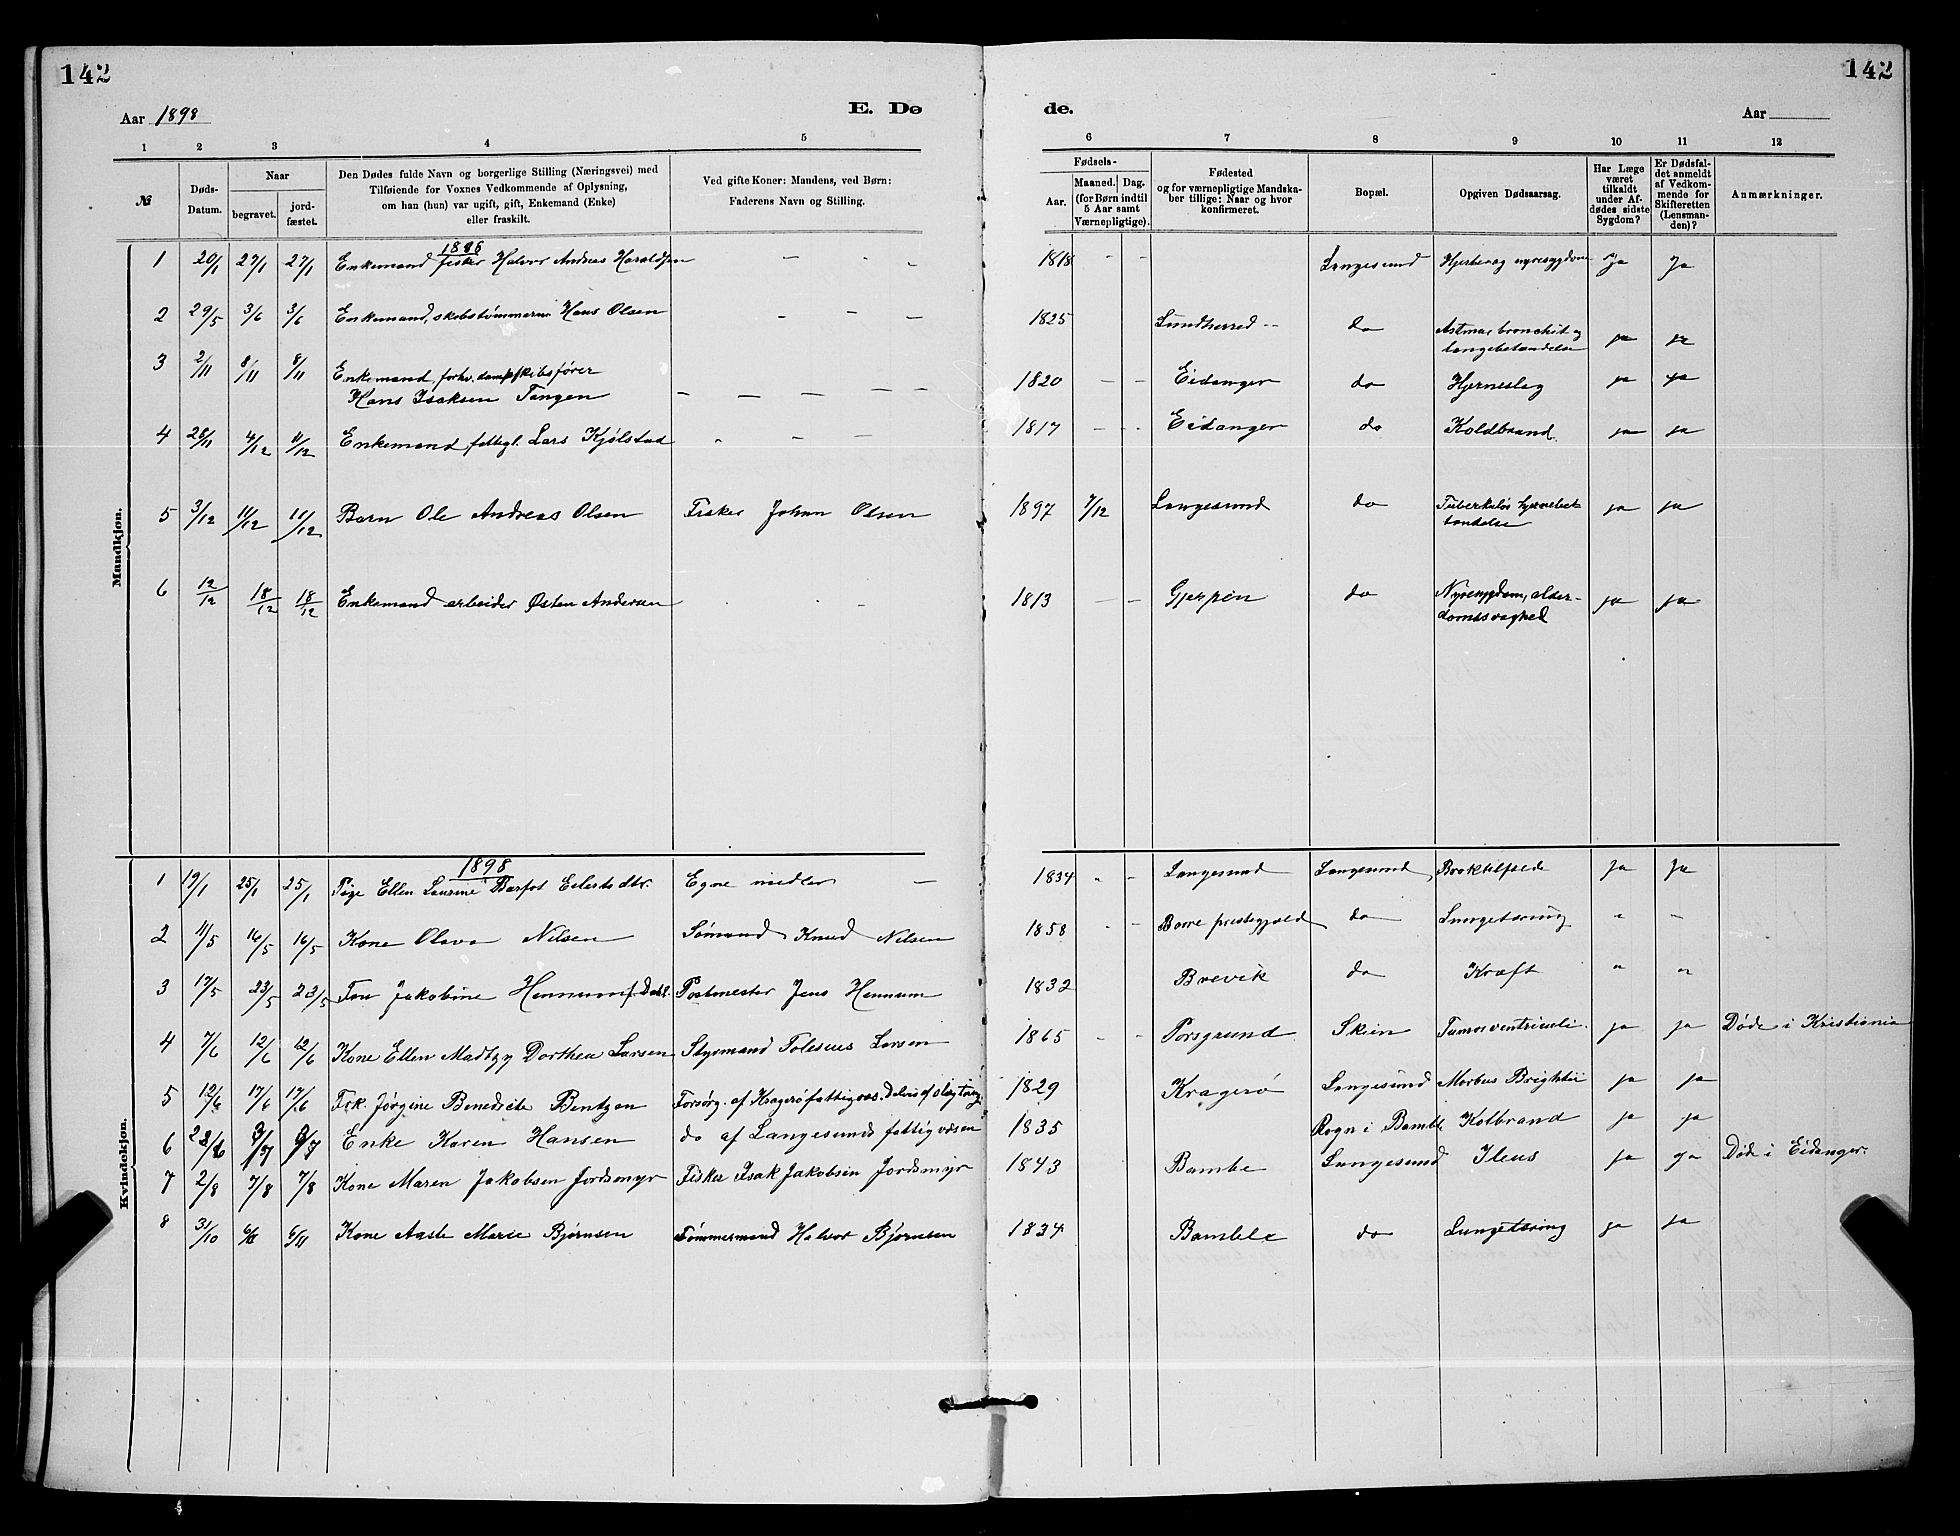 142
142
Aar 1898
E. Dø
de.
Aar
1 2 3 4 5 6 7 8 9 10 11 12
№
Døds-
Datum.
Naar
begravet.
jord-
fæstet.
Den Dødes fulde Navn og borgerlige Stilling (Næringsvei) med
Tilføiende for Voxnes Vedkommende af Oplysning,
om han (hun) var ugift, gift, Enkemand (Enke)
eller fraskilt.
Ved gifte Koner: Mandens, ved Børn:
Faderens Navn og Stilling.
Fødsels-
Aar.
Maaned. Dag.
(for Børn indtil
5 Aar samt
Værnepligtige).
Fødested
og for værnepligtige Mandska-
ber tillige: Naar og hvor
konfirmeret.
Bopæl.
Opgiven Dødsaarsag.
Har Læge
været
tilkaldt
under Af-
dødes sidste
Sygdom?
Er Dødsfal-
det anmeldt
af Vedkom-
mende for
Skifteretten
(Lensman-
den)?
Anmærkninger.
Mandkjøn.
1 20/1 27/1 27/1 Enkemand fisker Halvor Andreas Haraldsen - - - 1818 - - Langesund Hjerte og nyresygdom Ja Ja
2 29/5 3/6 3/6 Enkemand, skibstømmerm Hans Olsen - - - 1825 Sundherred -- do Astma, bronchit og ja ja
lungebetændelse
3 2/11 8/11 8/11 Enkemand, forhv. dampskibsfører
Hans Isaksen Tangen - - - - - 1820 - - Eidanger do Hjerneslag ja ja
4 28/11 4/12 4/12 Enkemand, fattigl. Lars Kjølstad - - - 1817 - - Eidanger do Koldbrand ja ja
5 3/12 11/12 11/12 Barn Ole Andreas Olsen Fisker Johan Olsen 1897 7/12 Langesund do Tuberkuløs hjernebe- ja ja
tændelse
6 12/12 18/12 18/12 Enkemand arbeider Østen Andersen - - 1813 - - Gjerpen do Nyresygdom, alder- ja ja
domssvaghed
Kvindekjøn.
1898
1 19/1 25/1 25/1 Pige Ellen Laurine Barfot Eilertsdtr. Egne midler - 1834 - - Langesund Langesund Broktilfælde ja ja
2 11/5 16/5 16/5 Kone Olava Nilsen Sømand Knud Nilsen 1858 - - Borre prestegjeld do Lungetæring " -
3 17/5 23/5 23/5 Fru Jakobine Hennum f. Dahl. Postmester Jens Hennum 1832 Brevik do Kræft " "
4 7/6 12/6 12/6 Kone Ellen Mathea Dorthea Larsen Styrmand Tolesius Larsen 1865 - - Porsgrund Skien Tumor ventriculi. ja ja Døde i Kristiania
5 12/6 17/6 17/6 Frk. Jørgine Benedicte Bentzen Forsørg. af Kragerø fattigvæs. Delvis af slægtning. 1829 Kragerø Langesund Morbus Brightii ja ja
6 28/6 3/7 3/7 Enke Karen Hansen do af Langesunds fattigvæsen 1835 Rogn i Bamble Kolbrand ja ja
7 2/8 7/8 7/8 Kone Maren Jakobsen Jordsmyr Fisker Isak Jakobsen Jordsmyr 1843 Bambe Langesund Ileus ja ja Død i Eidanger.
8 31/10 6/11 6/11 Kone Aaste Marie Bjørnsen Tømmermand Halvor Bjørnsen 1834 Bamble do Lungetæring ja ja